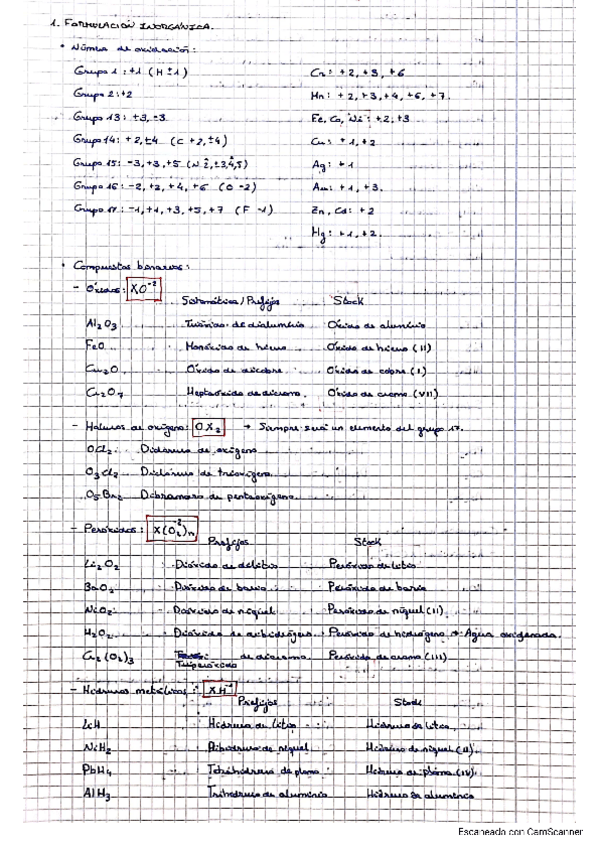 1. FORMULACIÓN INORGÁNICA.
• Número de oxidación:
Grupo 1: +1 (H ±1) Cr: +2, +3, +6
Grupo 2: +2 Mn: +2, +3, +4, +6, +7.
Grupo 13: +3, -3 Fe, Co, Ni: +2, +3
Grupo 14: +2, ±4 (C +2, ±4) Cu: +1, +2
Grupo 15: -3, +3, +5 Ag: +1
Grupo 16: -2, +2, +4, +6 (O -2) Au: +1, +3.
Grupo 17: -1, +1, +3, +5, +7 (F -1) Zn, Cd: +2
Hg: +1, +2.
• Compuestos binarios:
- Óxidos: XO⁻²
Sistemática/Prefijos Stock
Al₂O₃ Trióxido de dialuminio Óxido de aluminio
FeO Monóxido de hierro Óxido de hierro (II)
Cu₂O Óxido de dicobre Óxido de cobre (I)
Cr₂O₇ Heptaóxido de dicromo Óxido de cromo (VII)
- Haluros de oxígeno: OX₂ → Siempre será un elemento del grupo 17.
OCl₂ Dicloruro de oxígeno
O₃Cl₂ Dicloruro de trioxígeno
O₅Br₂ Dibromuro de pentaoxígeno
- Peróxidos: X(O₂⁻²)ₙ
Prefijos Stock
Li₂O₂ Dióxido de dilitio Peróxido de litio
BaO₂ Dióxido de bario Peróxido de bario
NiO₂ Dióxido de níquel Peróxido de níquel (II)
H₂O₂ Dióxido de dihidrógeno Peróxido de hidrógeno → Agua oxigenada.
Cr₂(O₂)₃ de dicromo Peróxido de cromo (III)
Trisperóxido
- Hidruros metálicos: XH⁻¹
Prefijos Stock
LiH Hidruro de litio Hidruro de litio
NiH₂ Dihidruro de níquel Hidruro de níquel (II)
PbH₄ Tetrahidruro de plomo Hidruro de plomo (IV)
AlH₃ Trihidruro de aluminio Hidruro de aluminio
Escaneado con CamScanner